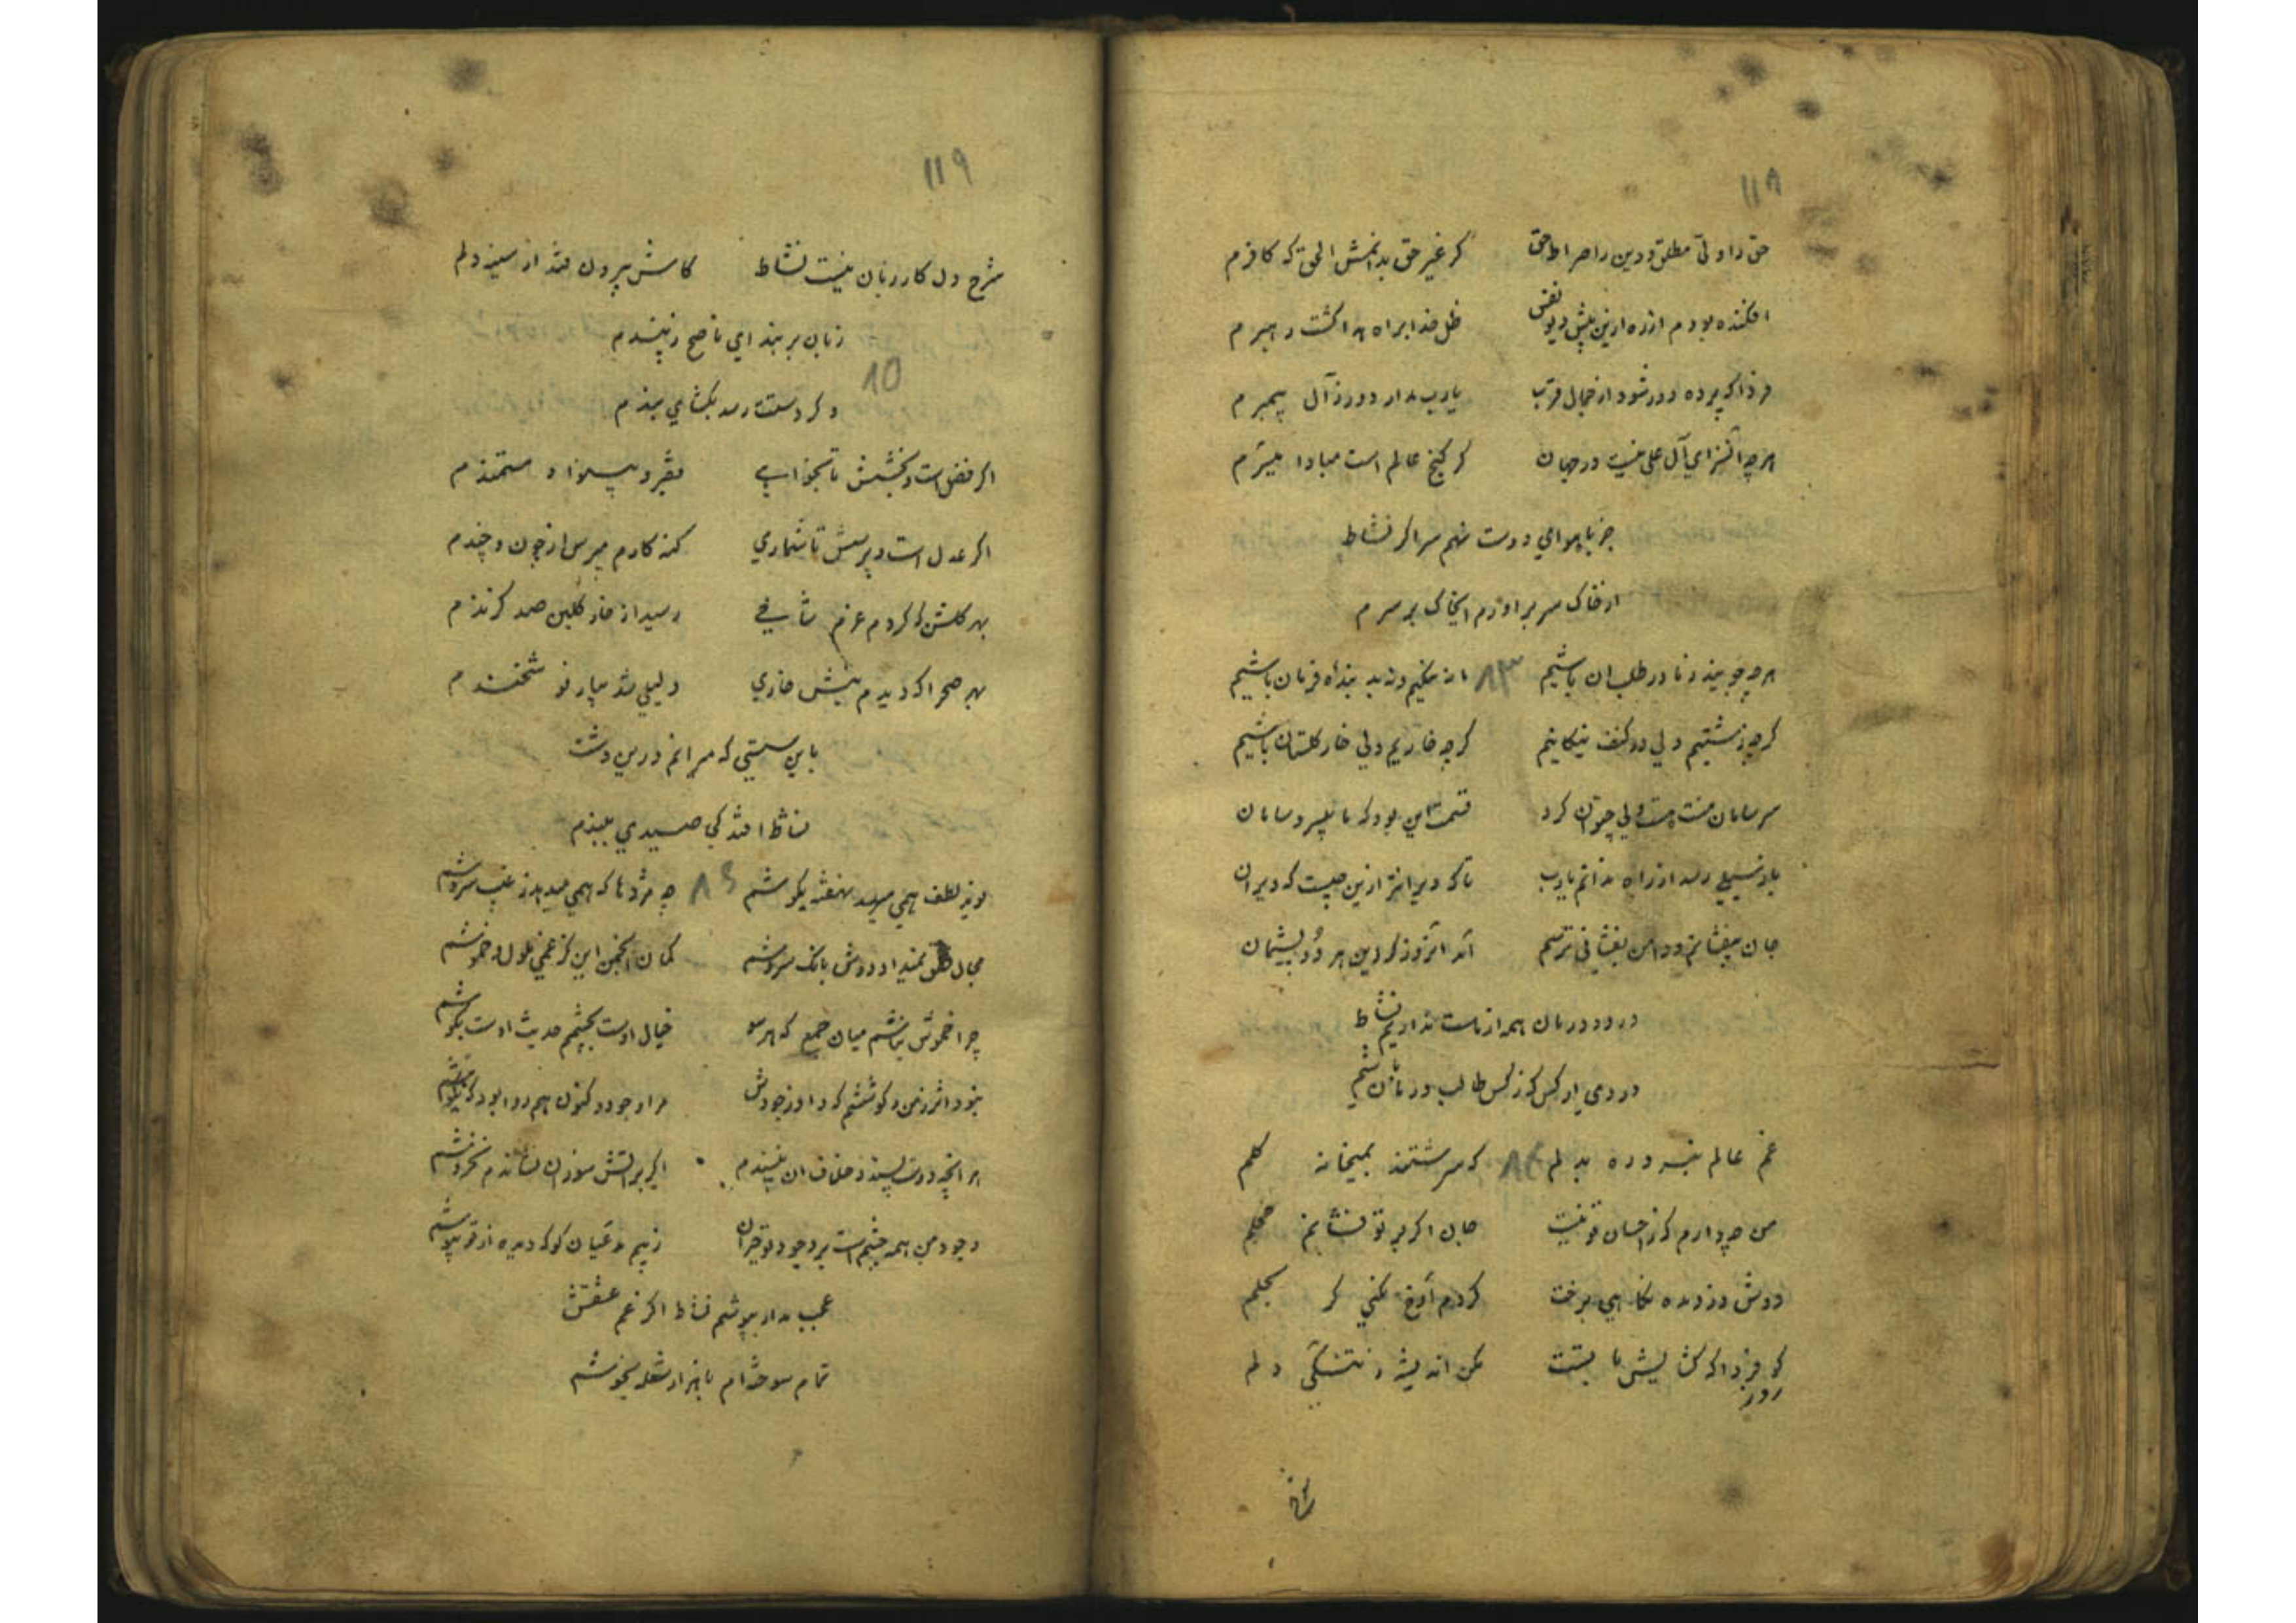 ۱۱۸
حق را ولی مطلق و دین را صراط حق کر غیر حق بدانمش الحق که کافرم
افکنده بودم از ره ازین پیش دیو نفس ظل خدا براه هدا کشت رهبرم
فردا که پرده دور شود از جمال قرب یارب مدار دور ز آل پیمبرم
هر چه از برای آل علی نیست در جهان کر کنج عالم است مبادا میسرم
جز با هوای دوست نهم سر اکر نشاط
از خاک سر بر اورم ایخاک بر سرم
هر چه جویند ز ما در طلب ان باشیم ۸۳ ما نه نیکیم و نه بد بنده فرمان باشیم
کر چه زشتیم ولی در کنف نیکانیم کر چه خاریم ولی خار کلستان باشیم
سر سامان منت هست ولی چتوان کرد قسمت این بود که ما بیسر و سامان
باد نسیمی رسد از راه ندانم یارب تا که ویرانتر ازین چیست که ویران
جان بیفشانم و دامن بفشانی ترسم اید انروز کزین هر دو پشیمان
درد و درمان همه از ماست نداریم نشاط
دردی از کس که ز کس طالب درمان باشیم
غم عالم نبرد ره بدلم ۸۴ که سرشتند بمیخانه کلم
من چه دارم که ز احسان تو نیست جان اکر بر تو فشانم خجلم
دوش دزدیده نکاهی برخت کردم آوخ نکنی کر بحلم
کو فردا که کشایش با بست مکن اندیشه ز تنکی دلم
روز
۱۱۹
شرح دل کار زبان نیست نشاط کاش بیرون فتد از سینه دلم
زبان بر بند ای ناصح ز پندم
۸۵
و کر دستت رسد بکشای بندم
اکر فضل است و بخشش تا بخواهی فقیر و بینوا و مستمندم
اکر عدل است و پرسش تا شماری کنه کارم مپرس از چون و چندم
بهر کلشن که کردم عزم شاخی رسید از خار کلبن صد کزندم
بهر صحرا که دیدم نیش خاری دلیلی شد بپار نو شخندم
باین سستی که میرانم درین دشت
نشاط افتد کی صیدی ببندم
نوید لطف همی میرسد نهفته بکوشم ۸۶ چه مژدها که همی میدهد ز غیب سروشم
مجال نطق نمیداد دوش بانک سروشم کمان انجمن این کز غمی ملول و خموشم
چرا خموش نباشم میان جمع که هر سو خیال اوست بچشم حدیث اوست بکوشم
نبود اثر ز من و کوششم که داد وجودش مرا وجود و کنون هم روا بود که نکوشم
هر انچه دوست پسندد خلاف ان نپسندم اکر بر اتش سوزان نشاندم نخروشم
وجود من همه چشم است بر وجود تو حیران ز بیم مدعیان کو که دیده از تو بپوشم
عجب مدار بپوشم نشاط اکر غم عشقش
تمام سوخته ام با هزار شعله بجوشم